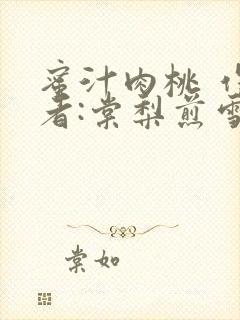 蜜汁肉桃 作
者:棠梨煎雪
棠如